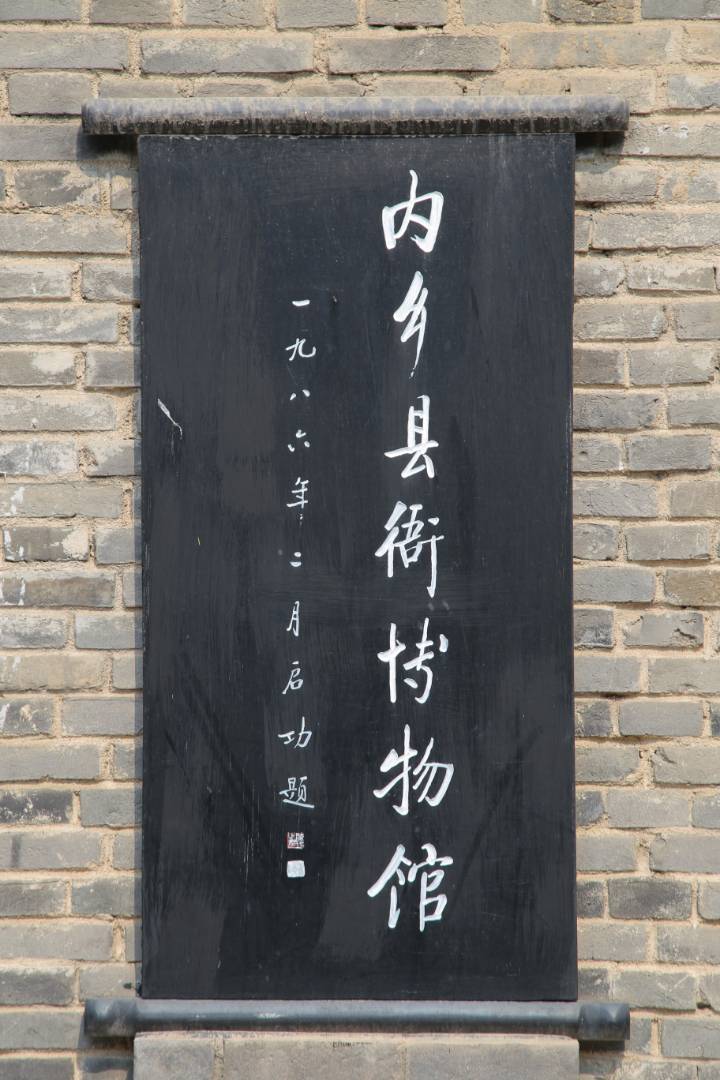 内乡县衙博物馆
一九八六年二月启功题